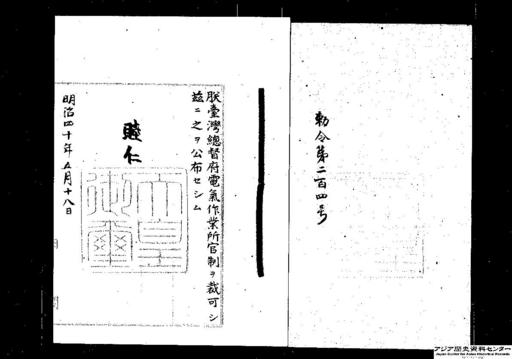 勅令第二百四号
朕臺灣總督府電氣作業所官制ヲ裁可シ
茲ニ之ヲ公布セシム
睦仁
天皇御璽
明治四十年五月十八日
アジア歴史資料センター
Japan Center for Asian Historical Records